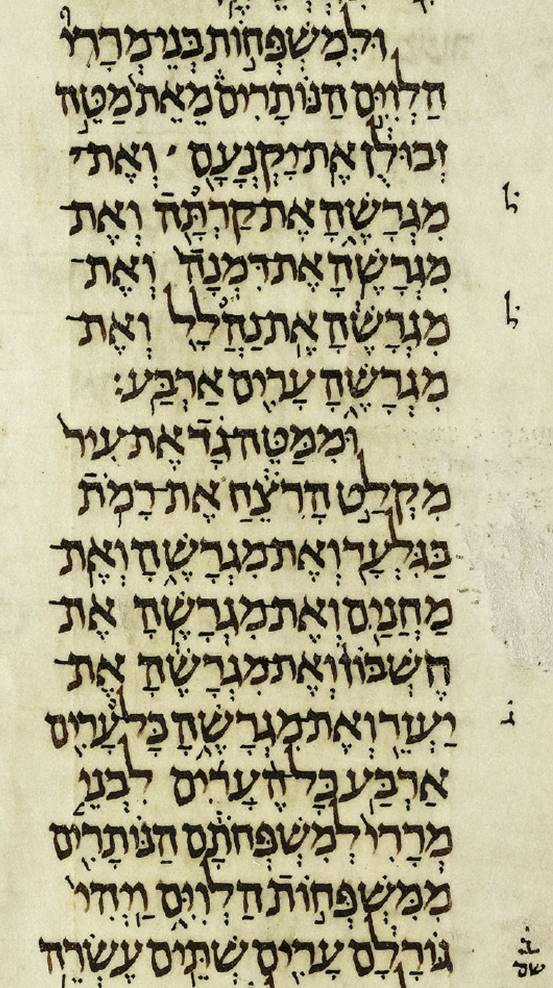 וּלְמִשְׁפְּחוֹת בְּנֵי מְרָרִי
הַלְוִיִּם הַנּוֹתָרִים מֵאֵת מַטֵּה
זְבוּלֻן אֶת־יָקְנְעָם וְאֶת־
מִגְרָשֶׁהָ אֶת־קַרְתָּה וְאֶת־ ל
מִגְרָשֶׁהָ אֶת־דִּמְנָה וְאֶת־
מִגְרָשֶׁהָ אֶת־נַהֲלָל וְאֶת־ ל
מִגְרָשֶׁהָ עָרִים אַרְבַּע׃
וּמִמַּטֵּה גָד אֶת־עִיר
מִקְלַט הָרֹצֵחַ אֶת־רָמֹת
בַּגִּלְעָד וְאֶת־מִגְרָשֶׁהָ וְאֶת־
מַחֲנַיִם וְאֶת־מִגְרָשֶׁהָ אֶת־
חֶשְׁבּוֹן וְאֶת־מִגְרָשֶׁהָ אֶת־
יַעְזֵר וְאֶת־מִגְרָשֶׁהָ כָּל־עָרִים
אַרְבַּע כָּל־הֶעָרִים לִבְנֵי
מְרָרִי לְמִשְׁפְּחֹתָם הַנּוֹתָרִים
מִמִּשְׁפְּחוֹת הַלְוִיִּם וַיְהִי
גּוֹרָלָם עָרִים שְׁתֵּים עֶשְׂרֵה